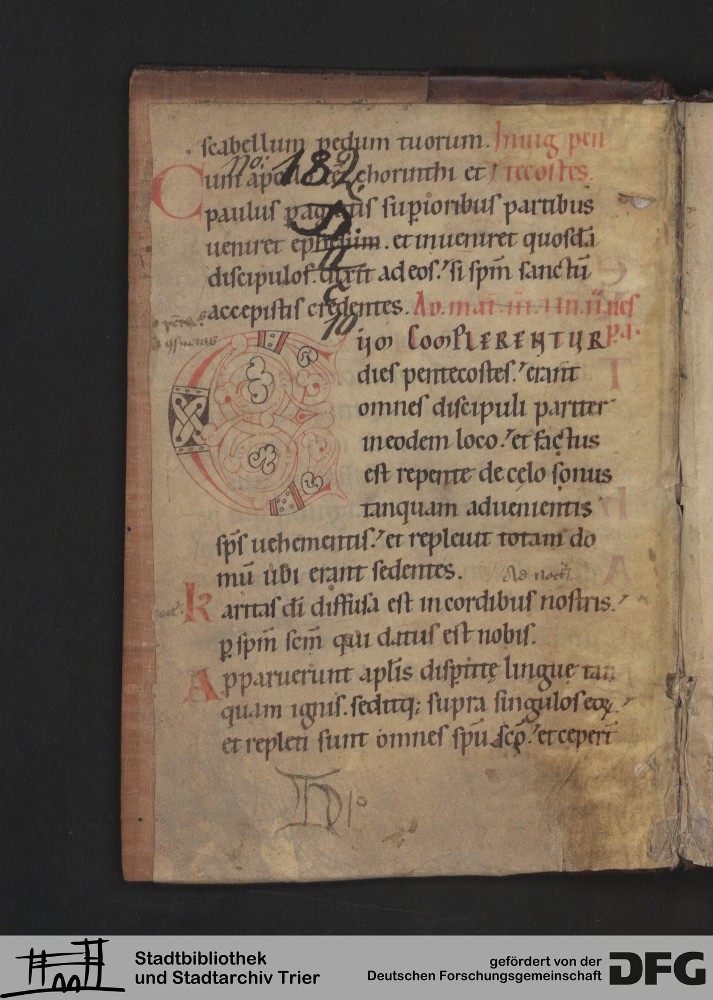 scabellum pedum tuorum. In uig pen
No: 182
Cum apollo chorinthi et tecostes.
paulus pagratis supioribus partibus
D
ueniret ephesum. et inueniret quosdā
discipulos. dixit ad eos. si spm̄ sanctū
accepistis credentes. Ad. mat̄.
10
Cum COMPLERENTUR
dies pentecostes. erant
omnes discipuli pariter
in eodem loco. et factus
est repente de cęlo sonus
tanquam aduenientis
sps̄ uehementis. et repleuit totam do
mū ubi erant sedentes. Ad noct̄.
karitas dī diffusa est in cordibus nostris.
p spm̄ scm̄ qui datus est nobis.
Apparuerunt aplīs disptitę linguę tan
quam ignis. seditq; supra singulos eoꝝ.
et repleti sunt omnes spū scō. et cepert̄
Stadtbibliothek
und Stadtarchiv Trier
gefördert von der
Deutschen Forschungsgemeinschaft
DFG